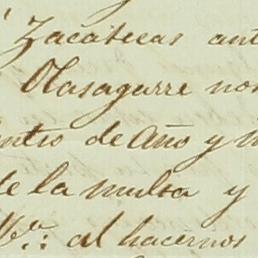 Zacatecas ant
Olasagarre no
entro de Año y m
de la multa y
V.a: al hacernos